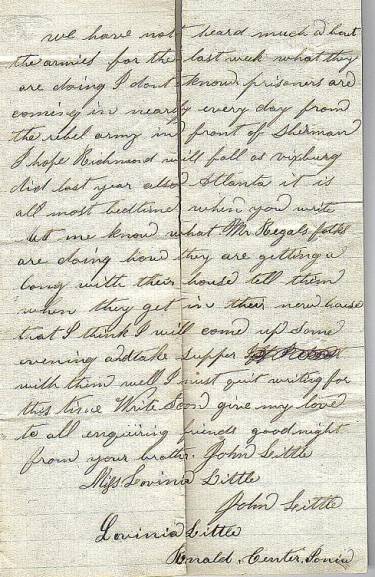 we have not heard much about
the armies for the last week what they
are doing I dont know prisoners are
coming in nearly every day from
the rebel army in front of Sherman
I hope Richmond will fall as vixburg
did last year also Atlanta it is
all most bedtime when you write
let me know what Mr Regals folks
are doing how they are getting a
long with their house tell them
when they get in their new house
that I think I will come up some
evening and take supper
with them well I must quit writing for
this time Write Soon give my love
to all enquiring friends goodnight
from your brother. John Little
Miss Lovinia Little
John Little
Lovinia Little
Center